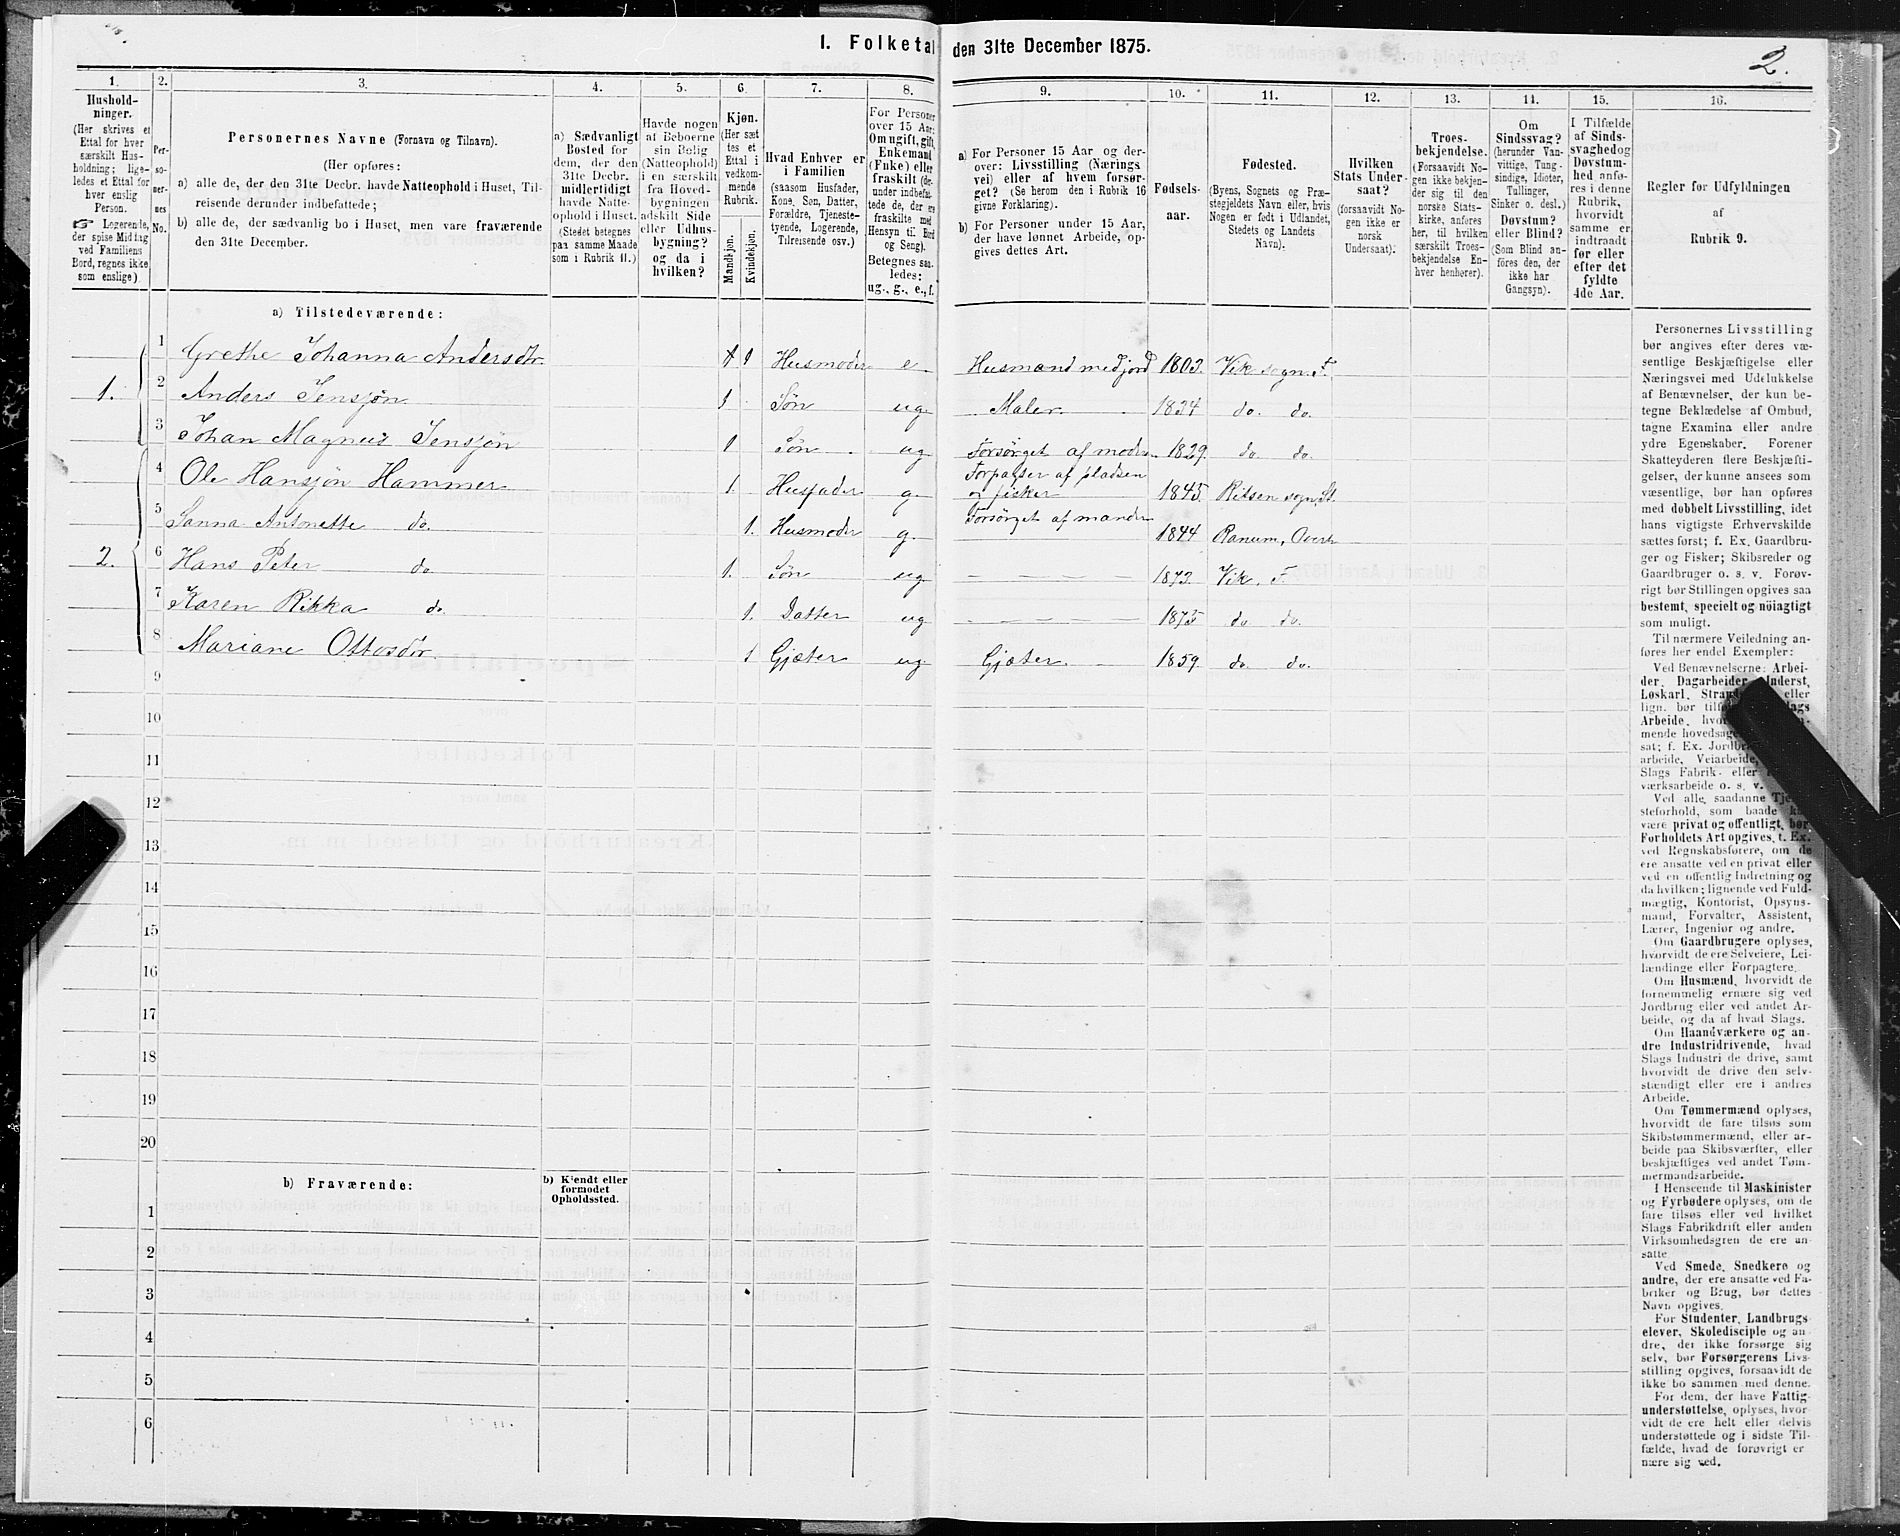 2.
1. Folketal den 31te December 1875.
1. 2. 3. 4. 5. 6. 7. 8. 9. 10. 11. 12. 13. 14. 15. 16.
Hushold-
ninger.
(Her skrives et
Ettal for hver
særskilt Hus-
holdning; lige-
ledes et Ettal for
hver enslig
Person.
☞ Logerende,
der spise Middag
ved Familiens
Bord, regnes ikke
som enslige)
Per-
so-
ner-
nes
No.
Personernes Navne (Fornavn og Tilnavn).
(Her opføres:
a) alle de, der den 31te Decbr. havde Natteophold i Huset, Til-
reisende derunder indbefattede;
b) alle de, der sædvanlig bo i Huset, men vare fraværende
den 31te December.
a) Sædvanligt
Bosted for
dem, der den
31te Decbr.
midlertidigt
havde Natte-
ophold i Huset.
(Stedet betegnes
paa samme Maade
som i Rubrik 11.)
Havde nogen
af Beboerne
sin Bolig
(Natteophold)
i en særskilt
fra Hoved-
bygningen
adskilt Side
eller Udhus-
bygning?
og da i
hvilken?
Kjøn.
(Her sæt
tes et
Ettal i
vedkom-
mende
Rubrik.
Mandkjøn.
Kvindekjøn.
Hvad Enhver er
i Familien
(saasom Husfader,
Kone, Søn, Datter,
Forældre, Tjeneste-
tyende, Logerende,
Tilreisende osv.)
For Personer
over 15 Aar:
Om ugift, gift,
Enkemand
(Enke) eller
fraskilt (der-
under indbefat-
tede de, der ere
fraskilte med
Hensyn til Bord
og Seng).
Betegnes saa-
ledes:
ug., g., e., f.
a) For Personer 15 Aar og der-
over: Livsstilling (Nærings
vei) eller af hvem forsør-
get? (Se herom den i Rubrik 16
givne Forklaring).
b) For Personer under 15 Aar,
der have lønnet Arbeide, op-
gives dettes Art.
Fødsels-
aar.
Fødested.
(Byens, Sognets og Præ-
stegjeldets Navn, eller, hvis
Nogen er født i Udlandet,
Stedets og Landets
Navn).
Hvilken
Stats Under-
saat?
(forsaavidt No-
gen ikke er
norsk
Undersaat).
Troes-
bekjendelse.
(Forsaavidt No-
gen ikke bekjen-
der sig til den
norske Stats-
kirke, anføres
her, til hvilken
særskilt Troes-
bekjendelse En-
hver henhører).
Om
Sindssvag?
(herunder Van-
vittige, Tung-
sindige, Idioter,
Tullinger,
Sinker o. desl.)
Døvstum?
eller Blind?
(Som Blind an-
føres den, der
ikke har
Gangsyn).
I Tilfælde
af Sinds-
svaghed og
Døvstum-
hed anfø-
res i denne
Rubrik,
hvorvidt
samme er
indtraadt
før eller
efter det
fyldte
4de Aar.
Regler for Udfyldningen
af
Rubrik 9.
a) Tilstedeværende:
1. 1 Grethe Johanna Andersdtr. 1 Husmoder e. Husmand med jord 1803. Vik sogn. F.
2 Anders Jensjøn 1 Søn ug. Maler 1834 do. do.
3 Johan Magnus Jensjøn 1 Søn ug Forsørget af moder. 1829. do. do.
2. 4 Ole Hansjøn Hammer 1 Husfader g. Forpagter af pladsen
og fisker 1845 sogn,
5 Sanna Antonette do. 1. Husmoder g. Forsørget af manden 1844 Ranum,
6 Hans Peter do 1. Søn ug 1873 Vik. F.
7 Karen Rikka do. 1. Datter ug 1875 do do.
8 Mariane Ottosdtr 1 Gjæter ug. Gjæter. 1859. do. do.
9
10
11
12
13
14
15
16
17
18
19
20
b) Fraværende: b) Kjendt eller
formodet
Opholdssted.
1
2
3
4
5
6
Personernes Livsstilling
bør angives efter deres væ-
sentlige Beskjæftigelse eller
Næringsvei med Udelukkelse
af Benævnelser, der kun be-
tegne Beklædelse af Ombud,
tagne Examina eller andre
ydre Egenskaber. Forener
Skatteyderen flere Beskjæfti-
gelser, der kunne ansees som
væsentlige, bør han opføres
med dobbelt Livsstilling, idet
hans vigtigste Erhvervskilde
sættes først; f. Ex. Gaardbru-
ger og Fisker; Skibsreder og
Gaardbruger o. s. v. Forøv-
rigt bør Stillingen opgives saa
bestemt, specielt og nöiagtigt
som muligt.
Til nærmere Veiledning an-
føres her endel Exempler:
Ved Benævnelserne: Arbei-
der, Dagarbeider, Inderst,
Løskarl, eller
lign. bør
Arbeide,
mende hovedsage
sat; f. Ex.
arbeide, Veiarbeide,
Slags Fabrik- eller
værksarbeide o. s. v.
Ved alle saadanne
steforhold, som baade
være privat og offentligt, bør
Forholdets Art opgives, t. Ex.
ved Regnskabsførere, om de
ere ansatte ved en privat eller
ved en offentlig Indretning og
da hvilken; lignende ved Fuld-
mægtig, Kontorist, Opsyns-
mand, Forvalter, Assistent,
Lærer, Ingeniør og andre.
Om Gaardbrugere oplyses,
hvorvidt de ere Selveiere, Lei-
lændinge eller Forpagtere.
Om Husmænd, hvorvidt de
fornemmelig ernære sig ved
Jordbrug eller ved andet Ar-
beide, og da af hvad Slags.
Om Haandværkere og an-
dre Industridrivende, hvad
Slags Industri de drive, samt
hvorvidt de drive den selv-
stændigt eller ere i andres
Arbeide.
Om Tømmermænd oplyses,
hvorvidt de fare tilsøs som
Skibstømmermænd, eller ar-
beide paa Skibsværfter, eller
beskjæftiges ved andet Tøm-
mermandsarbeide.
I Henseende til Maskinister
og Fyrbødere oplyses, om de
fare tilsøs eller ved hvilket
Slags Fabrikdrift eller anden
Virksomhedsgren de ere an-
satte
Ved Smede, Snedkere og
andre, der ere ansatte ved Fa-
briker og Brug, bør dettes
Navn opgives.
For Studenter, Landbrugs-
elever, Skoledisciple og an-
dre, der ikke forsørge sig
selv, bør Forsørgerens Livs-
stilling opgives, forsaavidt de
ikke bo sammen med denne.
For dem, der have Fattig-
understøttelse, oplyses, hvor-
vidt de ere helt eller delvis
understøttede og i sidste Til-
fælde, hvad de forøvrigt er
nære sig ved.